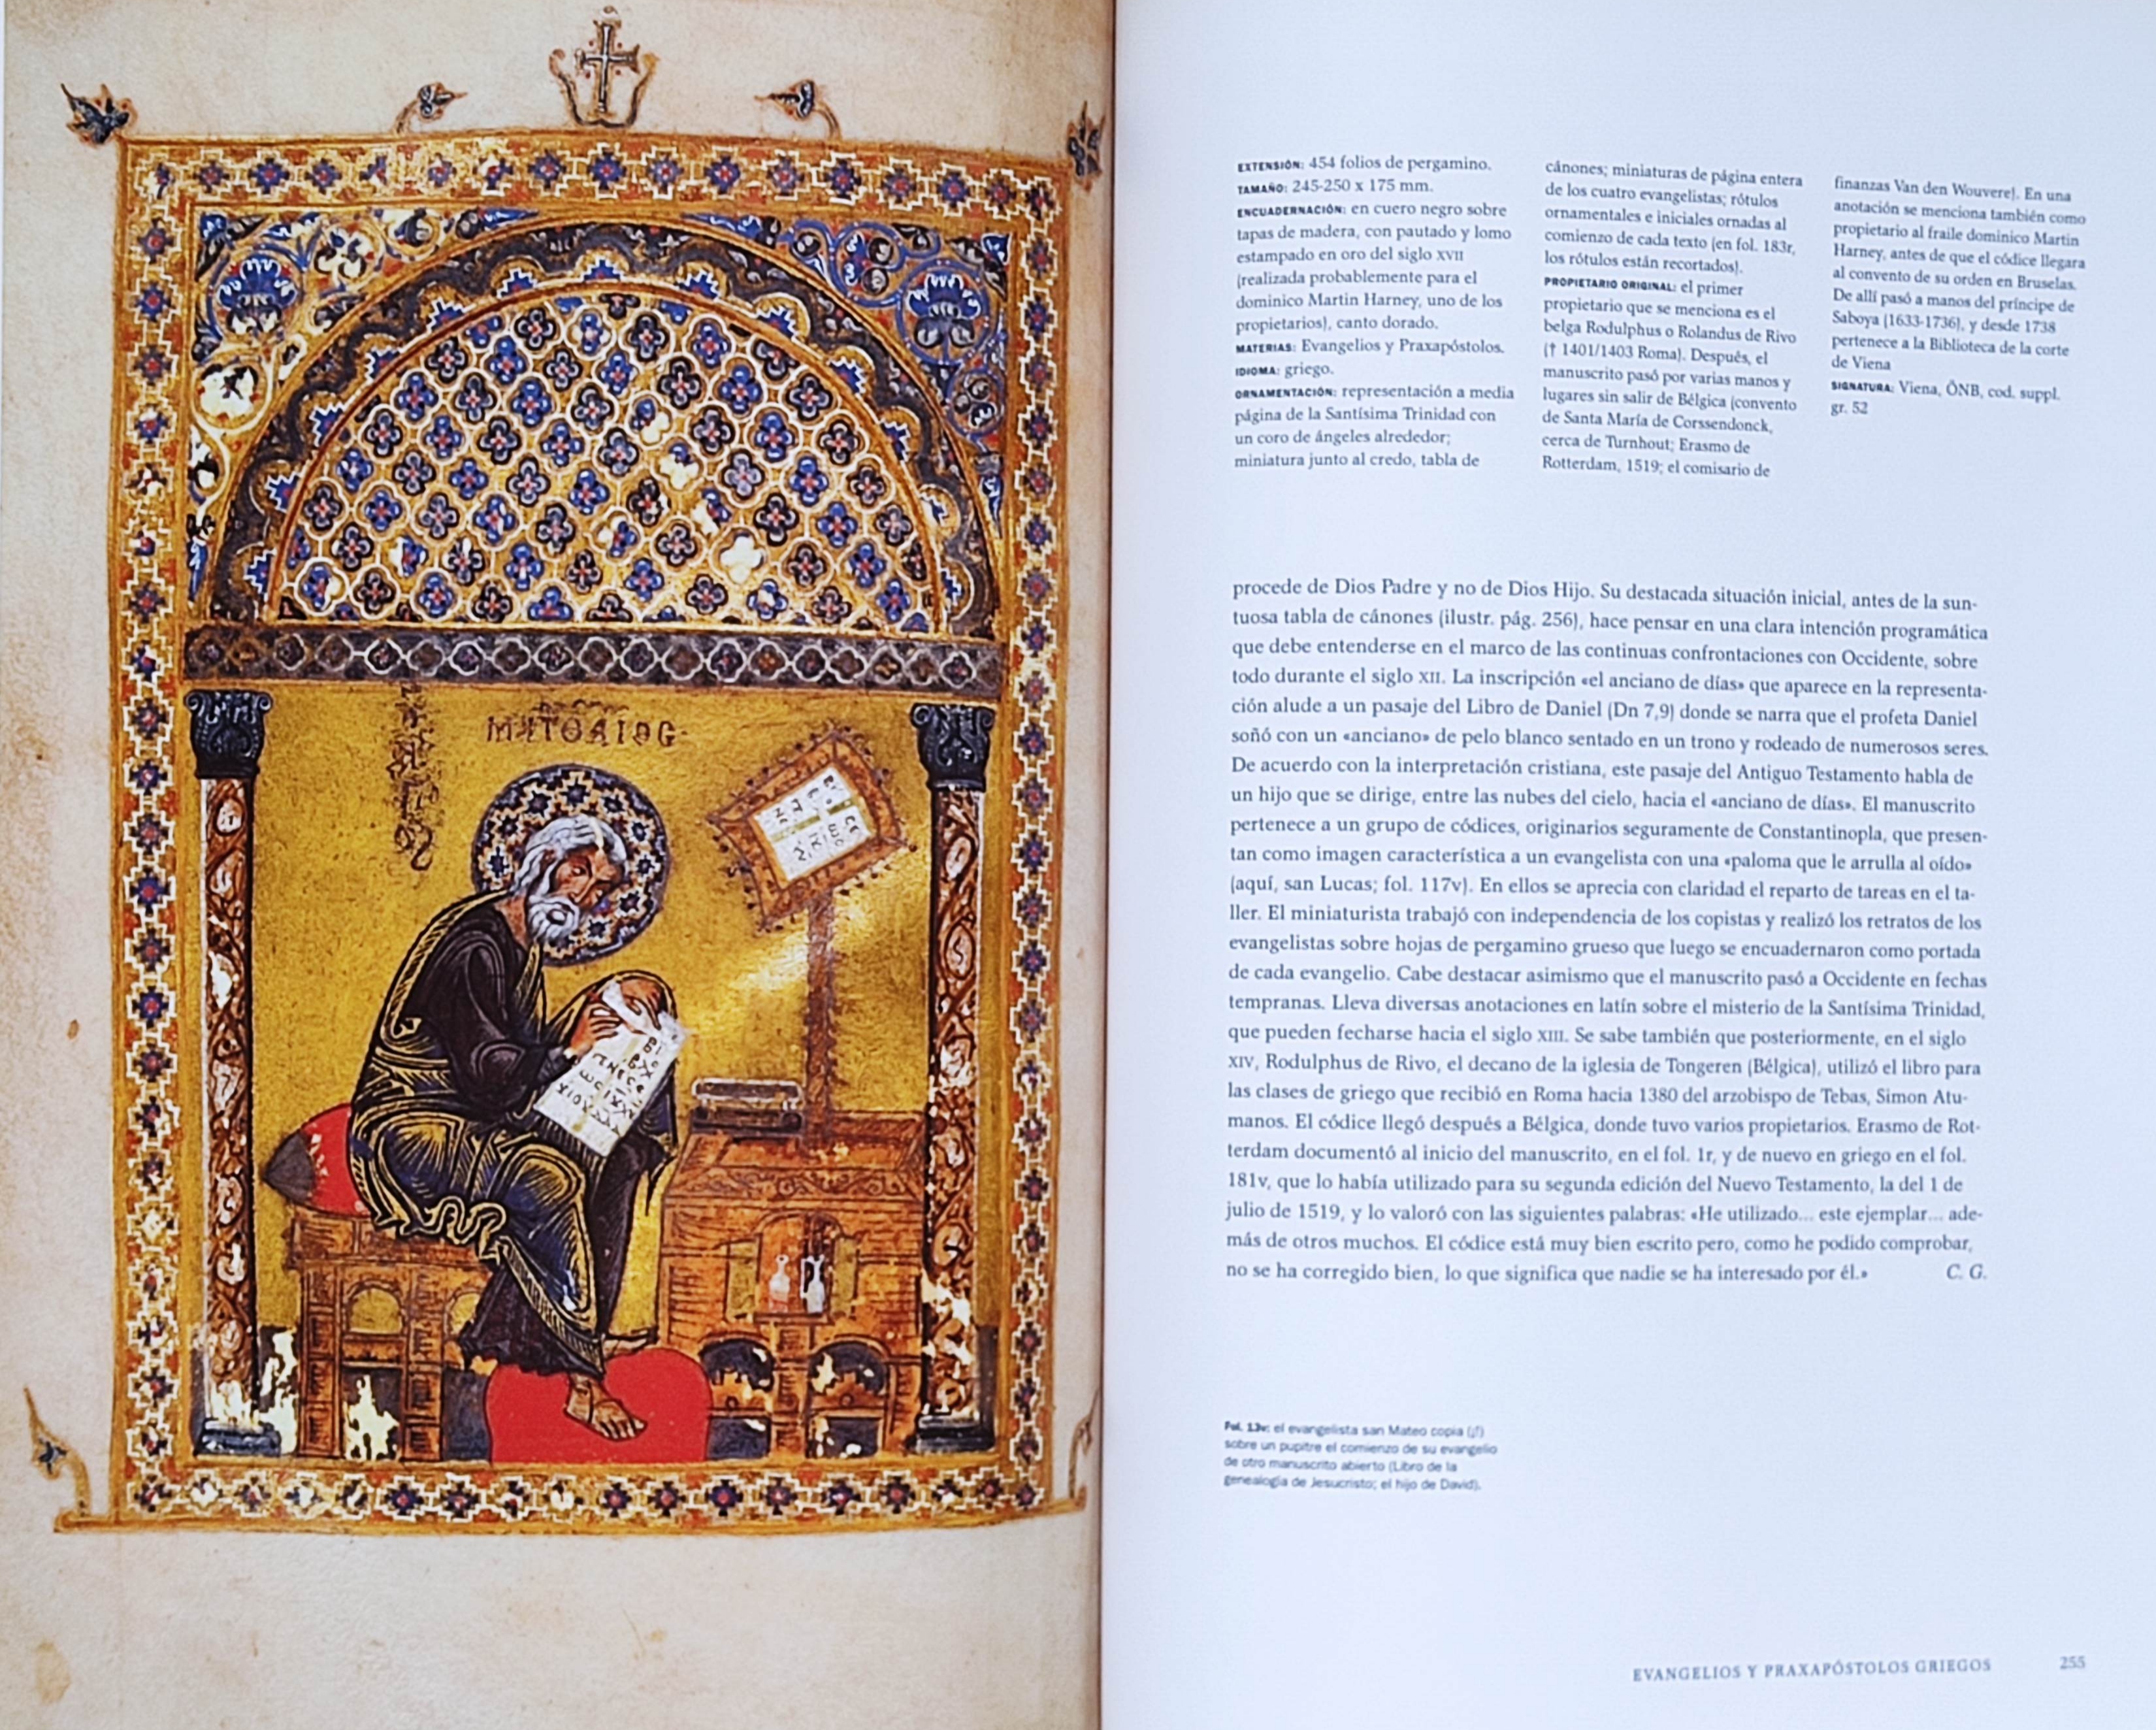 ΜΑΤΘΑΙΟC
EXTENSIÓN: 454 folios de pergamino.
TAMAÑO: 245-250 x 175 mm.
ENCUADERNACIÓN: en cuero negro sobre
tapas de madera, con pautado y lomo
estampado en oro del siglo XVII
(realizada probablemente para el
dominico Martin Harney, uno de los
propietarios), canto dorado.
MATERIAS: Evangelios y Praxapóstolos.
IDIOMA: griego.
ORNAMENTACIÓN: representación a media
página de la Santísima Trinidad con
un coro de ángeles alrededor;
miniatura junto al credo, tabla de
cánones; miniaturas de página entera
de los cuatro evangelistas; rótulos
ornamentales e iniciales ornadas al
comienzo de cada texto (en fol. 183r,
los rótulos están recortados).
PROPIETARIO ORIGINAL: el primer
propietario que se menciona es el
belga Rodulphus o Rolandus de Rivo
(† 1401/1403 Roma). Después, el
manuscrito pasó por varias manos y
lugares sin salir de Bélgica (convento
de Santa María de Corssendonck,
cerca de Turnhout; Erasmo de
Rotterdam, 1519; el comisario de
finanzas Van den Wouvere). En una
anotación se menciona también como
propietario al fraile dominico Martin
Harney, antes de que el códice llegara
al convento de su orden en Bruselas.
De allí pasó a manos del príncipe de
Saboya (1633-1736), y desde 1738
pertenece a la Biblioteca de la corte
de Viena
SIGNATURA: Viena, ÖNB, cod. suppl.
gr. 52
procede de Dios Padre y no de Dios Hijo. Su destacada situación inicial, antes de la sun-
tuosa tabla de cánones (ilustr. pág. 256), hace pensar en una clara intención programática
que debe entenderse en el marco de las continuas confrontaciones con Occidente, sobre
todo durante el siglo XII. La inscripción «el anciano de días» que aparece en la representa-
ción alude a un pasaje del Libro de Daniel (Dn 7,9) donde se narra que el profeta Daniel
soñó con un «anciano» de pelo blanco sentado en un trono y rodeado de numerosos seres.
De acuerdo con la interpretación cristiana, este pasaje del Antiguo Testamento habla de
un hijo que se dirige, entre las nubes del cielo, hacia el «anciano de días». El manuscrito
pertenece a un grupo de códices, originarios seguramente de Constantinopla, que presen-
tan como imagen característica a un evangelista con una «paloma que le arrulla al oído»
(aquí, san Lucas; fol. 117v). En ellos se aprecia con claridad el reparto de tareas en el ta-
ller. El miniaturista trabajó con independencia de los copistas y realizó los retratos de los
evangelistas sobre hojas de pergamino grueso que luego se encuadernaron como portada
de cada evangelio. Cabe destacar asimismo que el manuscrito pasó a Occidente en fechas
tempranas. Lleva diversas anotaciones en latín sobre el misterio de la Santísima Trinidad,
que pueden fecharse hacia el siglo XIII. Se sabe también que posteriormente, en el siglo
XIV, Rodulphus de Rivo, el decano de la iglesia de Tongeren (Bélgica), utilizó el libro para
las clases de griego que recibió en Roma hacia 1380 del arzobispo de Tebas, Simon Atu-
manos. El códice llegó después a Bélgica, donde tuvo varios propietarios. Erasmo de Rot-
terdam documentó al inicio del manuscrito, en el fol. 1r, y de nuevo en griego en el fol.
181v, que lo había utilizado para su segunda edición del Nuevo Testamento, la del 1 de
julio de 1519, y lo valoró con las siguientes palabras: «He utilizado... este ejemplar... ade-
más de otros muchos. El códice está muy bien escrito pero, como he podido comprobar,
no se ha corregido bien, lo que significa que nadie se ha interesado por él.» C. G.
Fol. 13v: el evangelista san Mateo copia (¡!)
sobre un pupitre el comienzo de su evangelio
de otro manuscrito abierto (Libro de la
genealogía de Jesucristo; el hijo de David).
EVANGELIOS Y PRAXAPÓSTOLOS GRIEGOS 255